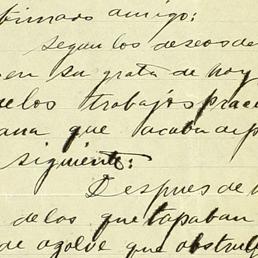 timado amigo:
Segun los deseos de
en su grata de hoy
de los trabajos prac
ana que acaba de p
siguiente:
Despues de
de los que tapaban
de azolve que obstru